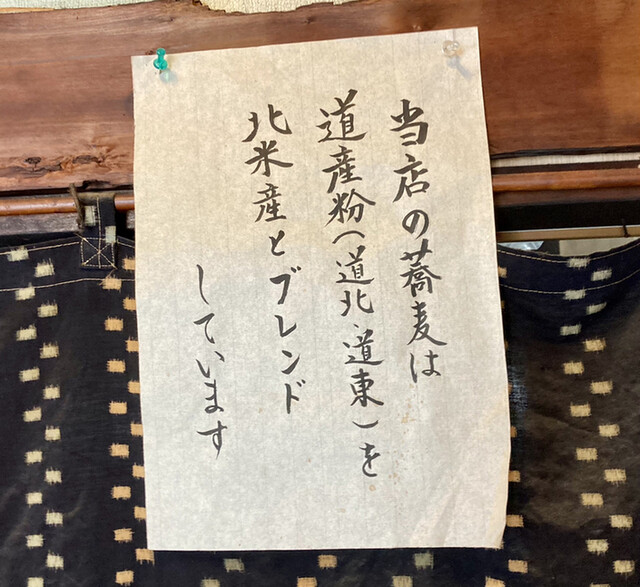 当店の蕎麦は
道産粉(道北・道東)を
北米産とブレンド
しています